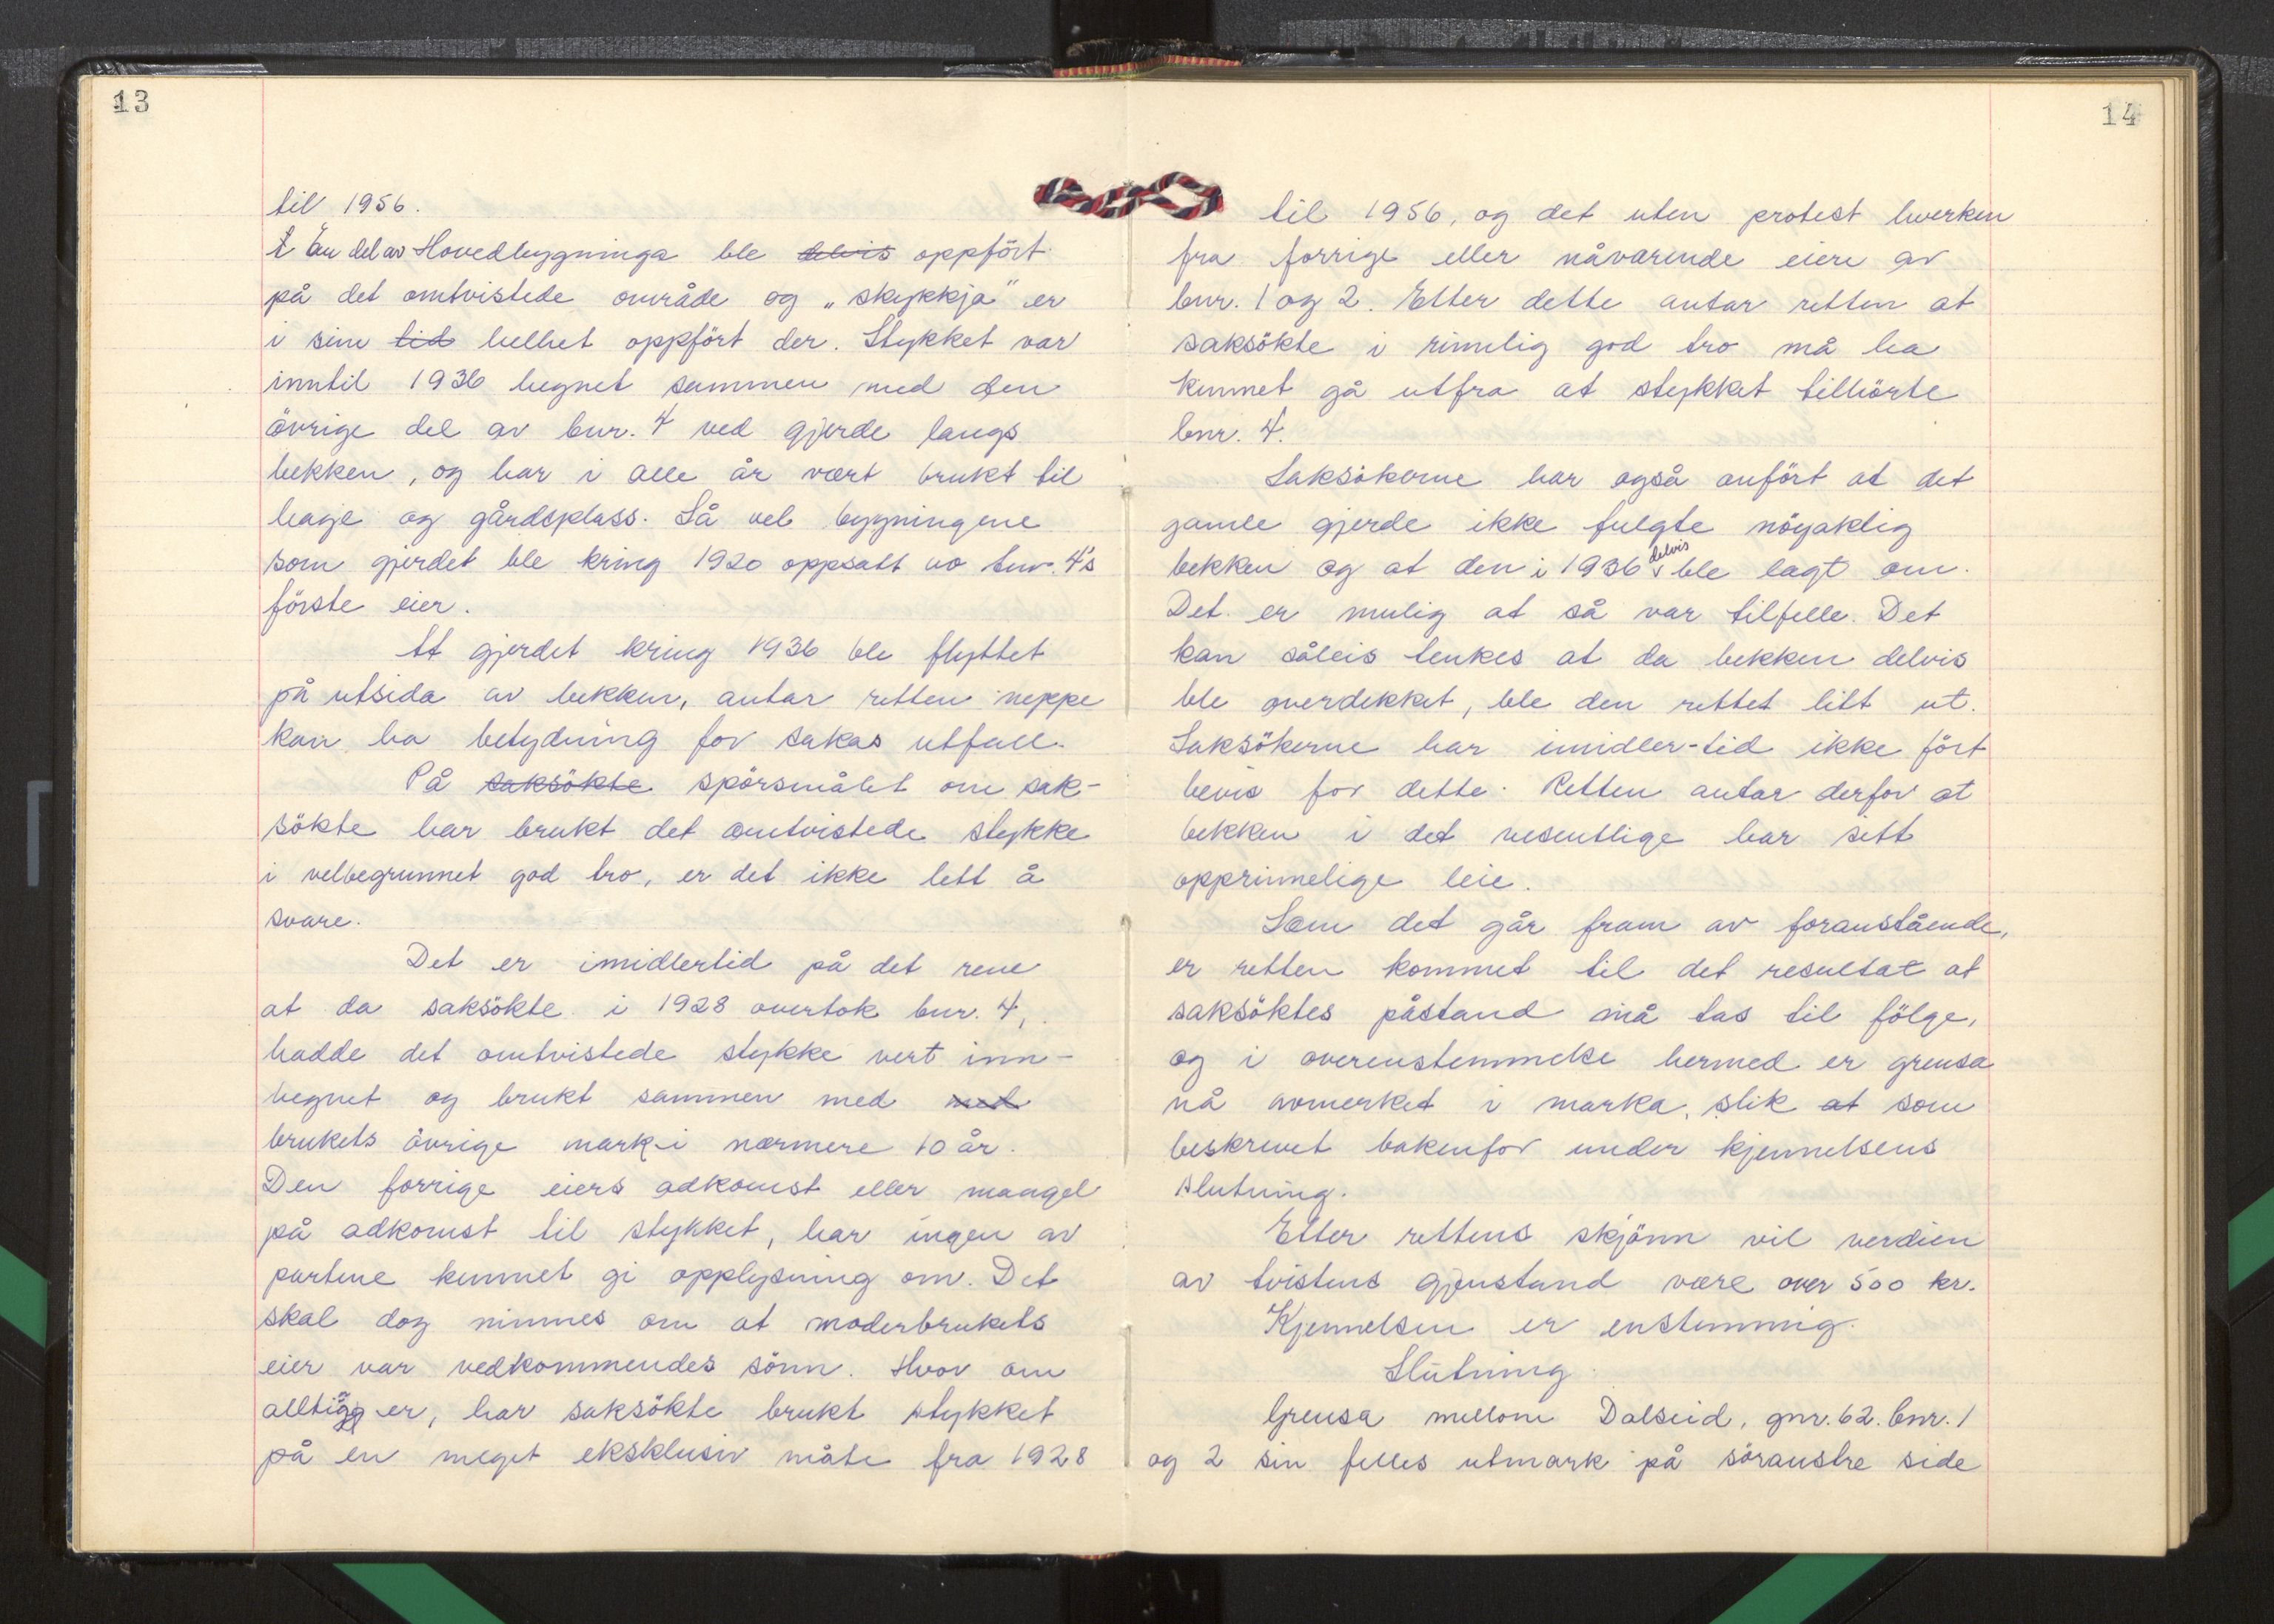 13
til 1956.
En del av Hovedbygninga ble delvis oppfört
på det omtvistede område og „skykkja" er
i sin tid helhet oppfört der. Stykket var
inntil 1936 hegnet sammen med den
övrige del av bnr. 4 ved gjerde langs
bekken, og har i alle år vært brukt til
hage og gårdsplass. Så vel bygningene
som gjerdet ble kring 1920 oppsatt av bnr. 4's
förste eier.
At gjerdet kring 1936 ble flyttet
på utsida av bekken, antar retten neppe
kan ha betydning for sakas utfall.
På saksökte spörsmålet om sak-
sökte har brukt det omtvistede stykke
i velbegrunnet god tro, er det ikke lett å
svare.
Det er imidlertid på det rene
at da saksökte i 1928 overtok bnr. 4,
hadde det omtvistede stykke vert inn-
hegnet og brukt sammen med med
brukets övrige mark i nærmere 10 år.
Den forrige eiers adkomst eller mangel
på adkomst til stykket, har ingen av
partene kunnet gi opplysning om. Det
skal dog minnes om at moderbrukets
eier var vedkommendes sönn. Hvor om
allting er, har saksökte brukt stykket
på en meget eksklusiv måte fra 1928
14
til 1956, og det uten protest hverken
fra forrige eller nåværende eiere av
bnr. 1 og 2. Etter dette antar retten at
saksökte i rimelig god tro må ha
kunnet gå utfra at stykket tilhörte
bnr. 4.
Saksökerne har også anfört at det
gamle gjerde ikke fulgte nöyaktig
bekken og at den i 1936 delvis ble lagt om.
Det er mulig at så var tilfelle. Det
kan såleis tenkes at da bekken delvis
ble overdekket, ble den rettet litt ut.
Saksökerne har imidler-tid ikke fört
bevis for dette. Retten antar derfor at
bekken i det vesentlige har sitt
opprinnelige leie.
Som det går fram av foranstående,
er retten kommet til det resultat at
saksöktes påstand må tas til fölge,
og i overenstemmelse hermed er grensa
nå avmerket i marka, slik at som
beskrevet bakenfor under kjennelsens
slutning.
Etter rettens skjönn vil verdien
av tvistens gjenstand være over 500 kr.
Kjennelsen er enstemmig.
Slutning
Grensa mellom Dalseid, gnr. 62. bnr. 1
og 2 sin felles utmark på söraustre side